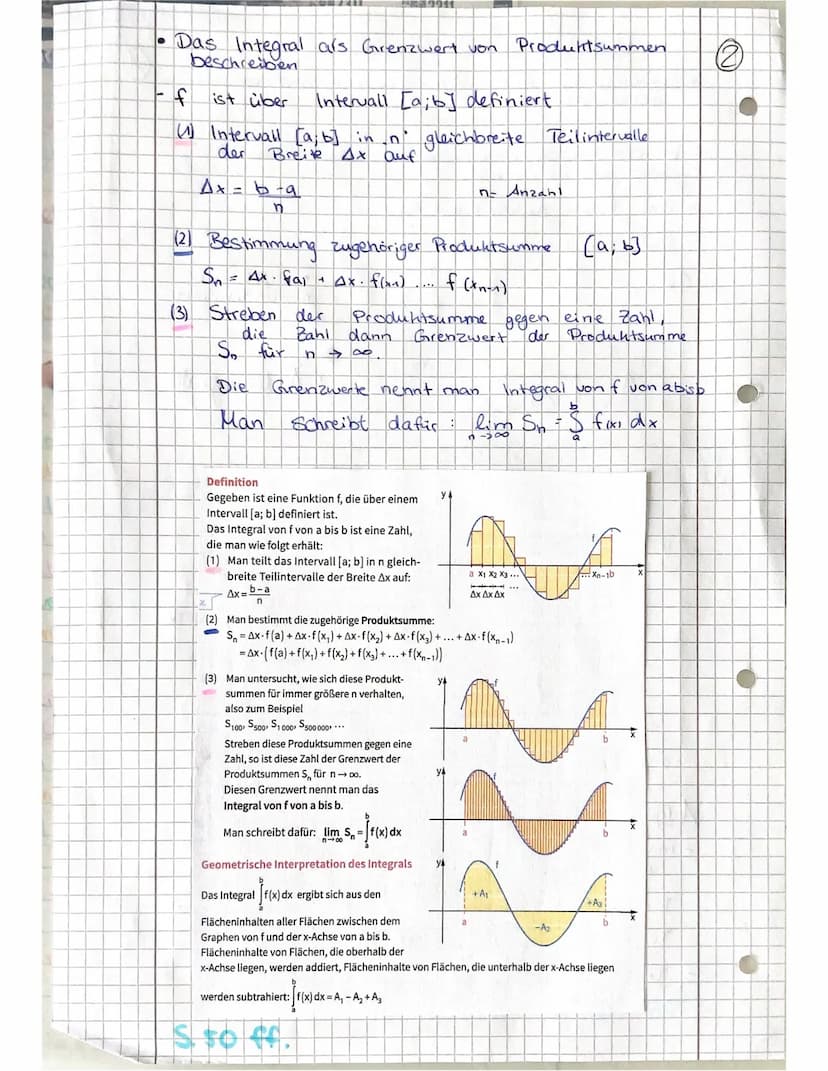 • Das Integral als Grenzwert von Produktsummen
beschreiben
②
- f ist über Intervall [a;b] definiert
(1) Intervall [a;b] in "n" gleichbreite Teilintervalle
der Breite Δx auf
Δx = b-a/n n= Anzahl
(2) Bestimmung zugehöriger Produktsumme [a;b]
Sn = Δx · f(a) + Δx · f(x1) .... f(xn-1)
(3) Streben der Produktsumme gegen eine Zahl,
die Zahl dann Grenzwert der Produktsumme
Sn für n → ∞.
Die Grenzwerte nennt man Integral von f von a bis b
Man schreibt dafür : lim n→∞ Sn = ∫ab f(x) dx
Definition
Gegeben ist eine Funktion f, die über einem
Intervall [a; b] definiert ist.
Das Integral von f von a bis b ist eine Zahl,
die man wie folgt erhält:
(1) Man teilt das Intervall [a; b] in n gleich-
breite Teilintervalle der Breite Δx auf:
Δx = b-a/n
y
f
a x₁ x₂ x₃ ... ... xₙ₋₁ b x
Δx Δx Δx ...
(2) Man bestimmt die zugehörige Produktsumme:
Sₙ = Δx·f(a) + Δx·f(x₁) + Δx·f(x₂) + Δx·f(x₃) + ... + Δx·f(xₙ₋₁)
= Δx·(f(a) + f(x₁) + f(x₂) + f(x₃) + ... + f(xₙ₋₁))
(3) Man untersucht, wie sich diese Produkt-
summen für immer größere n verhalten,
also zum Beispiel
S₁₀₀, S₅₀₀, S₁₀₀₀, S₅₀₀₀₀₀, ...
y f
a b x
Streben diese Produktsummen gegen eine
Zahl, so ist diese Zahl der Grenzwert der
Produktsummen Sₙ für n → ∞.
Diesen Grenzwert nennt man das
Integral von f von a bis b.
y f
a b x
Man schreibt dafür: lim n→∞ Sₙ = ∫ab f(x) dx
Geometrische Interpretation des Integrals
Das Integral ∫ab f(x) dx ergibt sich aus den
Flächeninhalten aller Flächen zwischen dem
Graphen von f und der x-Achse von a bis b.
Flächeninhalte von Flächen, die oberhalb der
x-Achse liegen, werden addiert, Flächeninhalte von Flächen, die unterhalb der x-Achse liegen
werden subtrahiert: ∫ab f(x) dx = A₁ - A₂ + A₃
y f
+A₁ +A₃
a -A₂ b x
S. 50 ff.